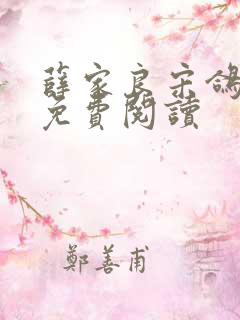 薛家良宋鴿
免費閱讀
鄭善甫